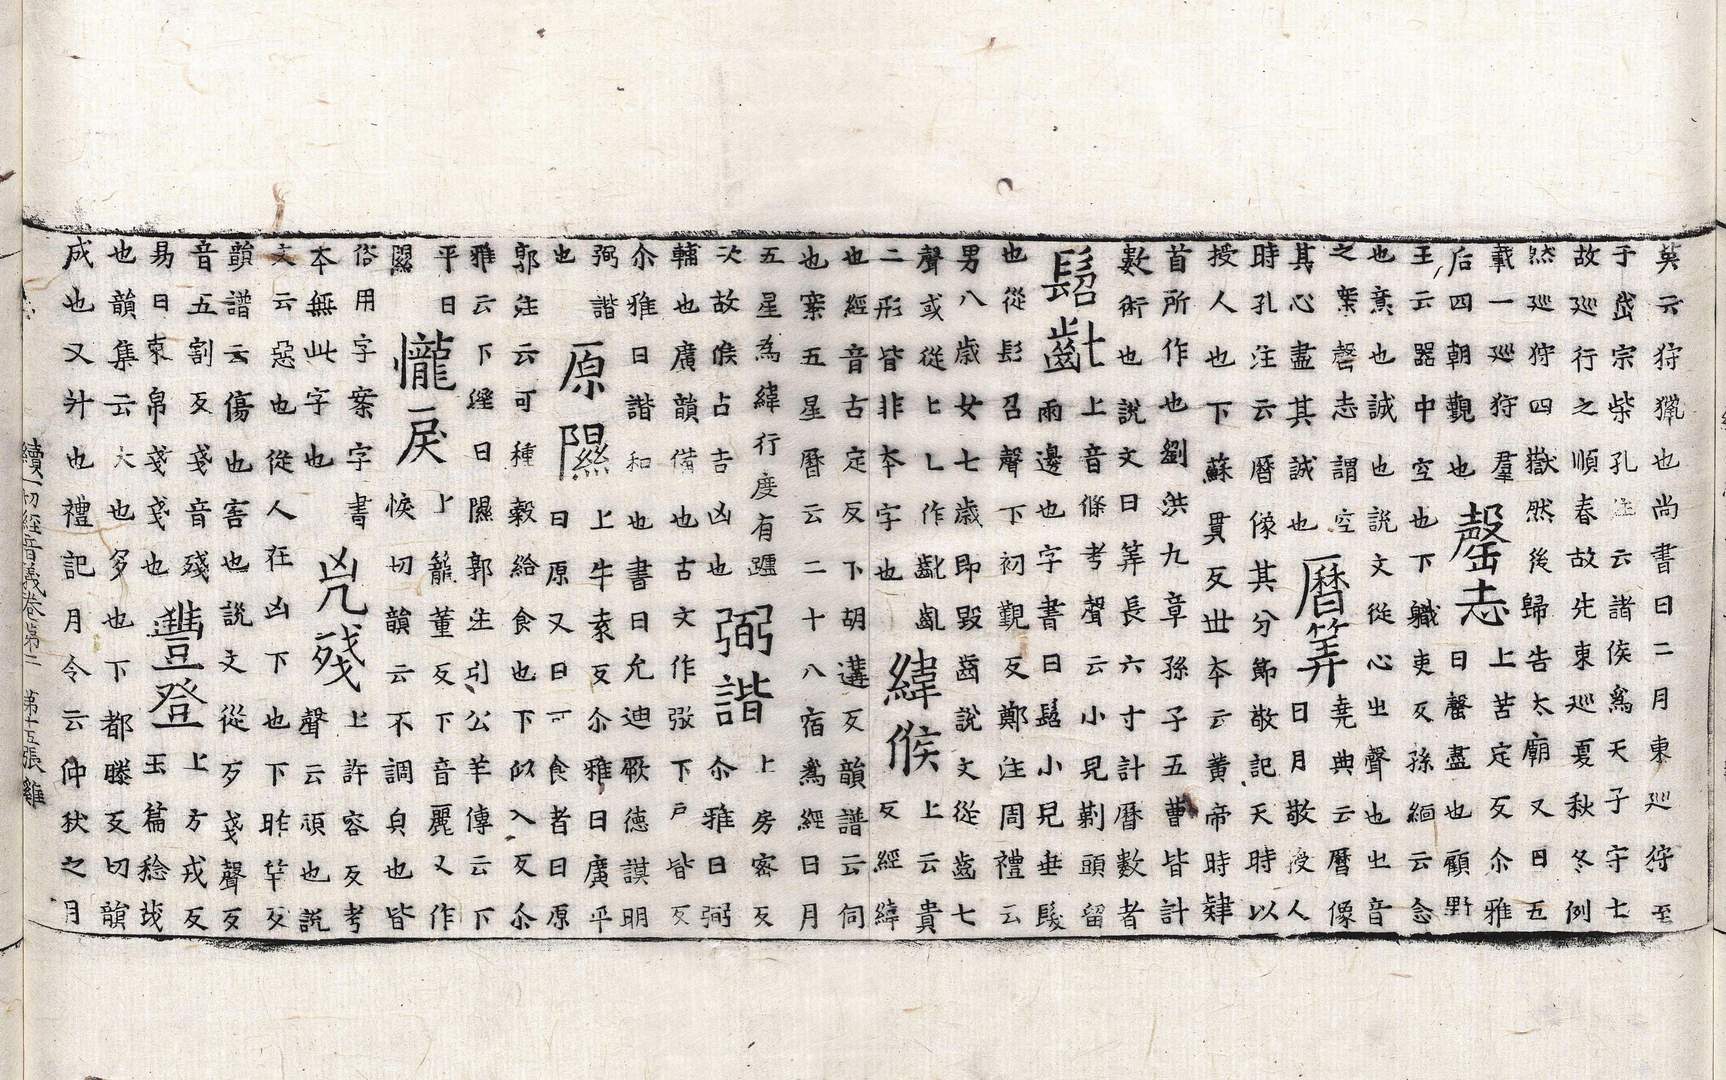 英云狩獵也尚書曰二月東巡狩至
于岱宗柴孔注云諸侯為天子守土
故巡行之順春故先東巡夏秋冬例
然巡狩四嶽然後歸告太廟又曰五
載一巡狩羣
后四朝覲也罄志上苦定反尒雅
王云器中空也下軄吏反孫緬云念
也意也誠也説文從心㞢聲也㞢音
之案罄志謂空
其心盡其誠也曆筭日月敬授人
時孔注云曆像其分節敬記天時以
授人也下蘇貫反丗夲云黄帝時隸
首所作也劉洪九章孫子五曹皆計
數術也説文曰筭長六寸計曆數者
髫齔上音條考聲云小兒剃頭留
兩邊也字書曰髫小兒垂髮
也從髟召聲下初覲反鄭注周禮云
男八歲女七歲即毀齒説文從齒七
聲或從匕乚作齔亂
二形皆非夲字也緯候上云貴反經緯
也經音古定反下胡遘反韻譜云伺
也案五星曆云二十八宿為經日月
五星為緯行度有躔
次故候占吉凶也弼諧上房密反尒雅曰弼
輔也廣韻備也古文作弜下戸皆反
尒雅曰諧和也書曰允迪厥德謨明
弼諧
也原隰上牛袁反尒雅曰廣平曰原又曰可食者曰原
郭注云可種穀給食也下似入反尒
雅云下溼曰隰郭注引公羊傳云下
平曰
隰㦕戾上籠董反下音麗又作悷切韻云不調皃也皆
俗用字案字書
夲無此字也兇殘上許容反考聲云頑也説
文云惡也從人在凶下也下昨竿反
韻譜云傷也害也説文從歹戔聲歹
音五割反戔音殘
易曰束帛戔戔也豐登上方戎反玉篇稔也
也韻集云大也多也下都滕反切韻
成也又升也禮記月令云仲秋之月
續一切經音義卷第二 第十五張 雞